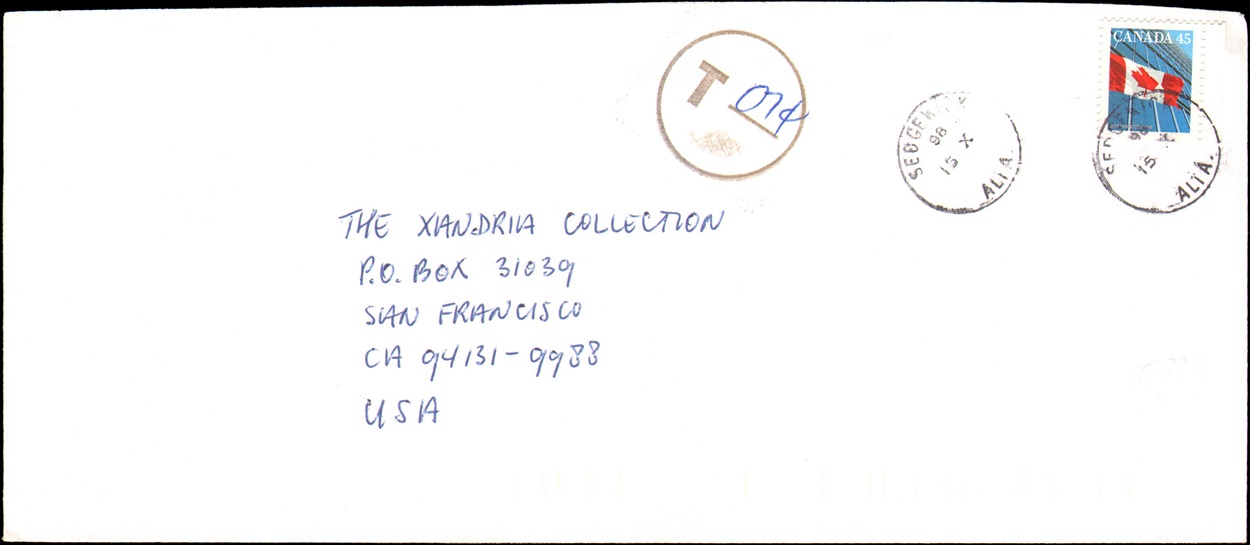 CANADA 45
T 07¢
SEDGEWICK
98
15 X
ALTA.
SEDGEWICK
98
15 X
ALTA.
THE XANDRIA COLLECTION
P.O. BOX 31039
SAN FRANCISCO
CA 94131-9988
USA